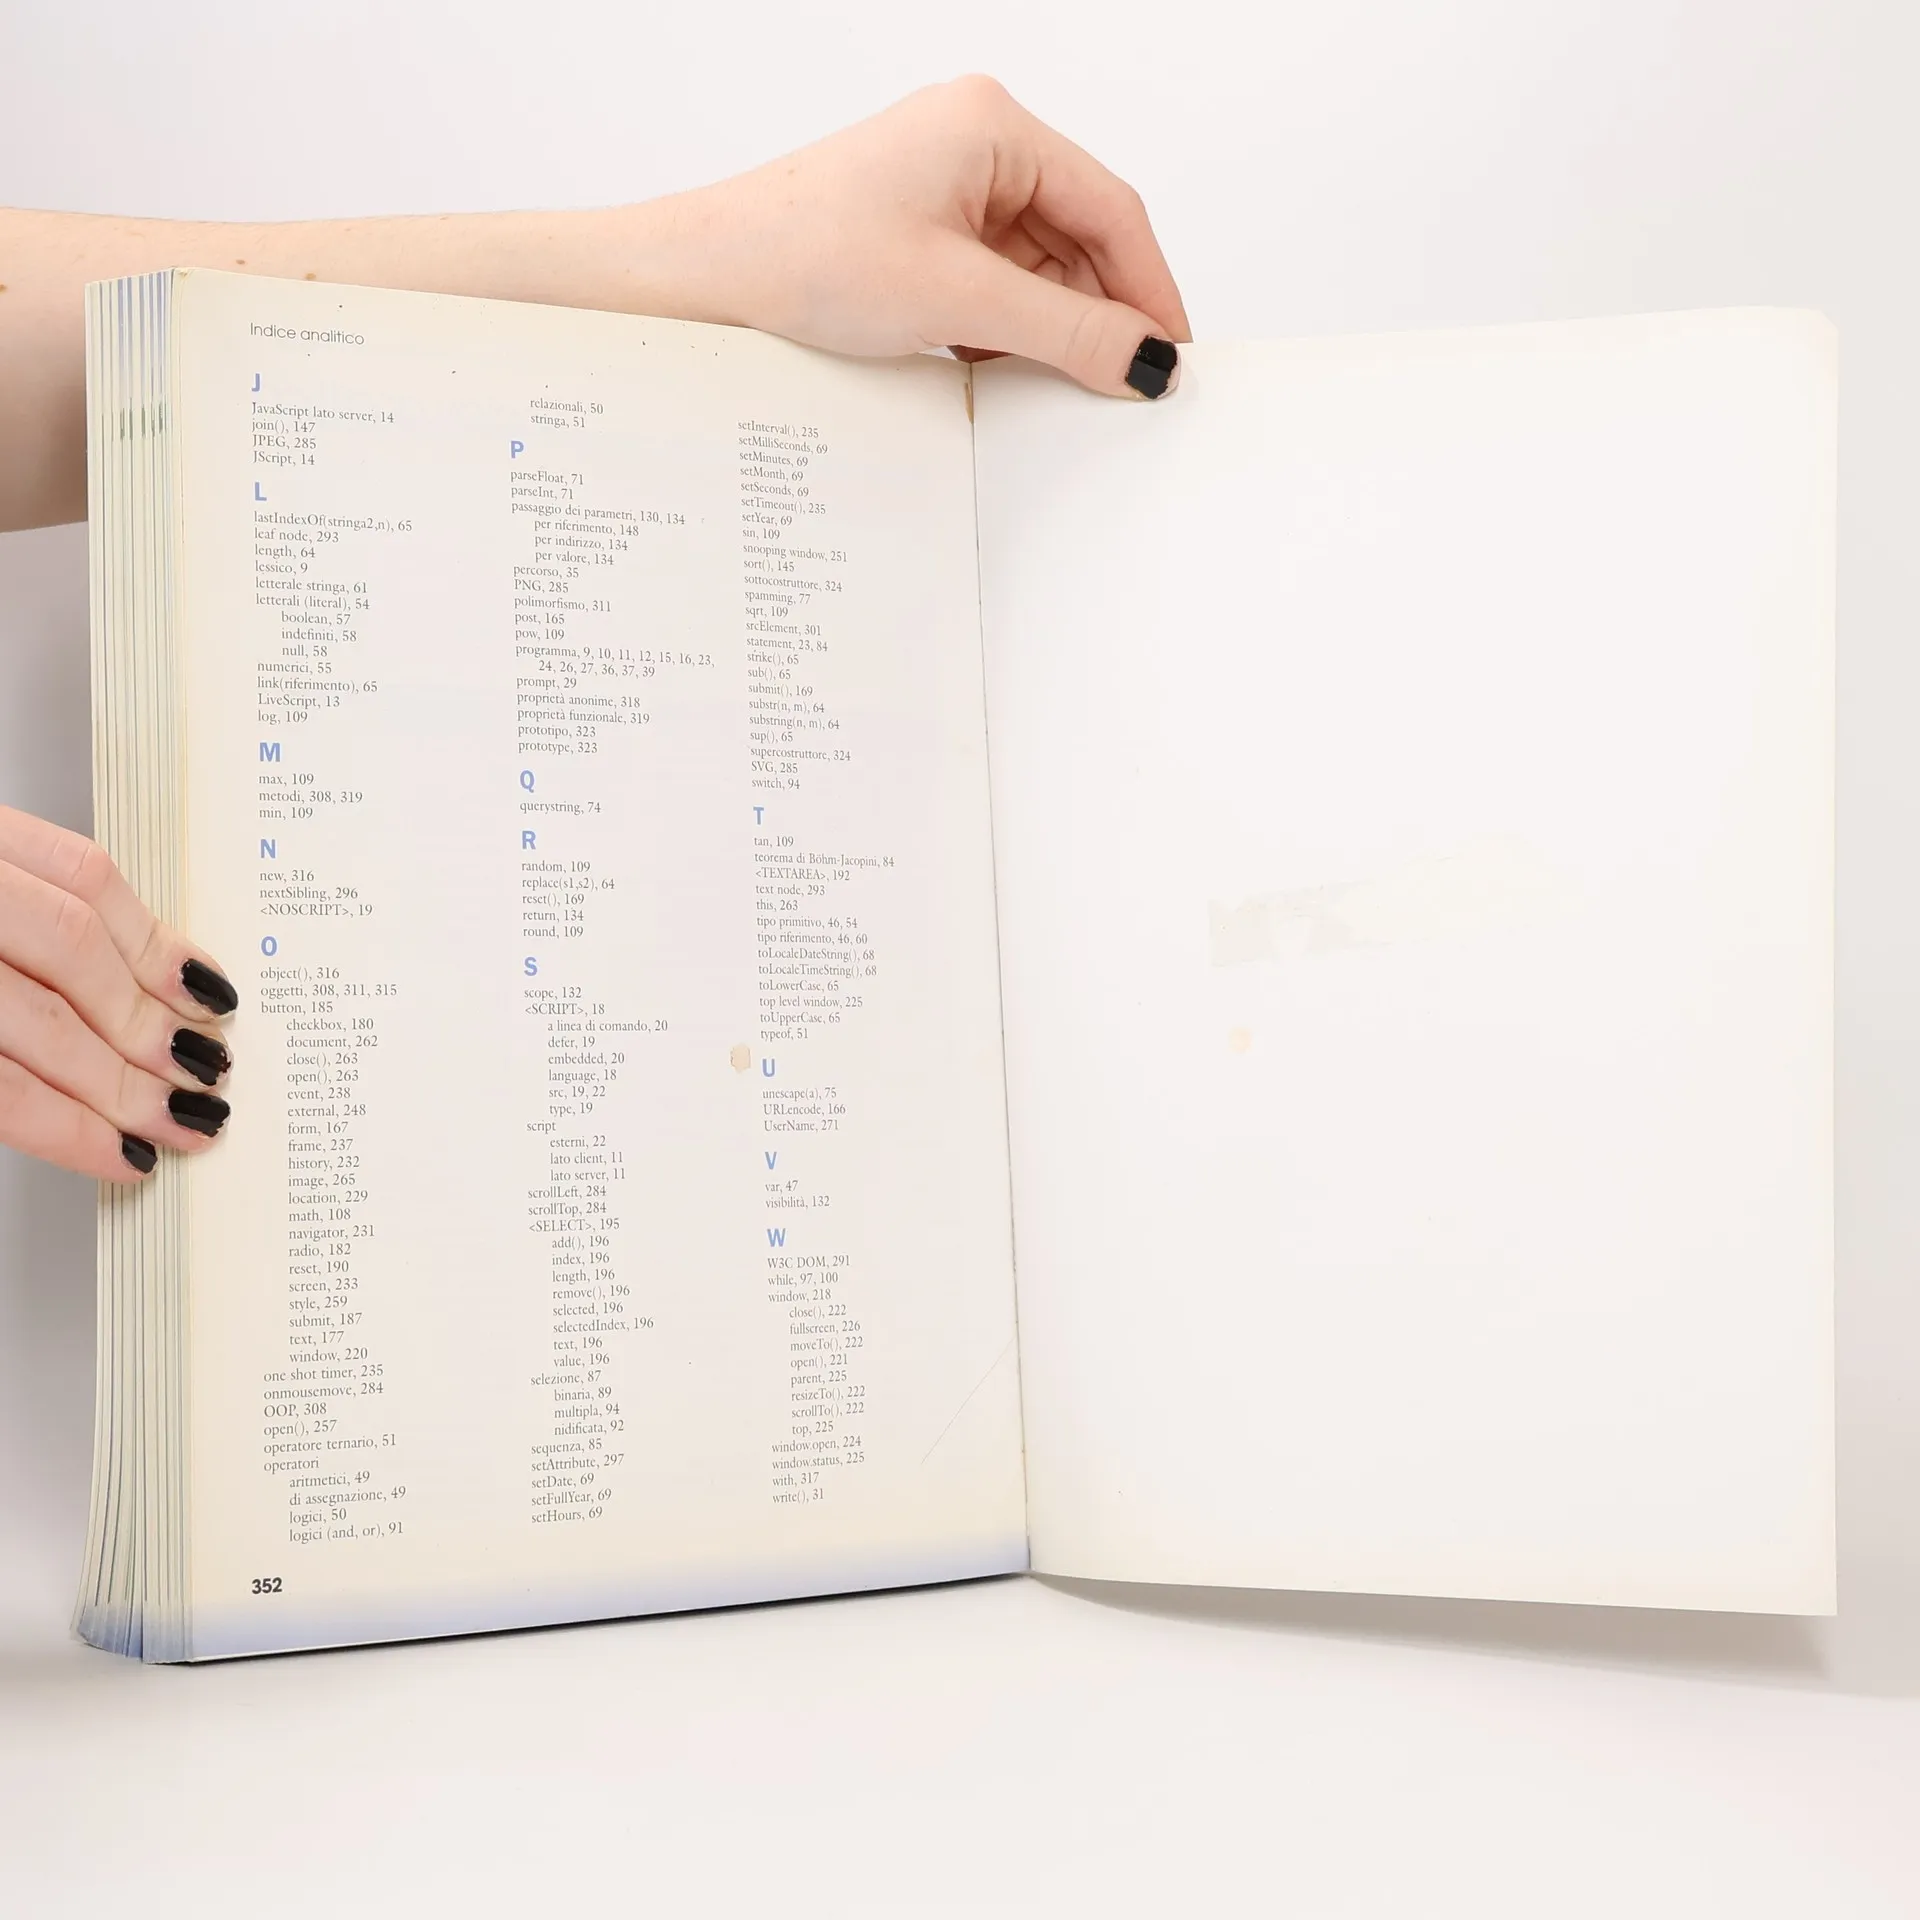 Indice analitico
J
JavaScript lato server, 14
join(), 147
JPEG, 285
JScript, 14
L
lastIndexOf(stringa2,n), 65
leaf node, 293
length, 64
lessico, 9
letterale stringa, 61
letterali (literal), 54
boolean, 57
indefiniti, 58
null, 58
numerici, 55
link(riferimento), 65
LiveScript, 13
log, 109
M
max, 109
metodi, 308, 319
min, 109
N
new, 316
nextSibling, 296
<NOSCRIPT>, 19
O
object(), 316
oggetti, 308, 311, 315
button, 185
checkbox, 180
document, 262
close(), 263
open(), 263
event, 238
external, 248
form, 167
frame, 237
history, 232
image, 265
location, 229
math, 108
navigator, 231
radio, 182
reset, 190
screen, 233
style, 259
submit, 187
text, 177
window, 220
one shot timer, 235
onmousemove, 284
OOP, 308
open(), 257
operatore ternario, 51
operatori
aritmetici, 49
di assegnazione, 49
logici, 50
logici (and, or), 91
relazionali, 50
stringa, 51
P
parseFloat, 71
parseInt, 71
passaggio dei parametri, 130, 134
per riferimento, 148
per indirizzo, 134
per valore, 134
percorso, 35
PNG, 285
polimorfismo, 311
post, 165
pow, 109
programma, 9, 10, 11, 12, 15, 16, 23,
24, 26, 27, 36, 37, 39
prompt, 29
proprietà anonime, 318
proprietà funzionale, 319
prototipo, 323
prototype, 323
Q
querystring, 74
R
random, 109
replace(s1,s2), 64
reset(), 169
return, 134
round, 109
S
scope, 132
<SCRIPT>, 18
a linea di comando, 20
defer, 19
embedded, 20
language, 18
src, 19, 22
type, 19
script
esterni, 22
lato client, 11
lato server, 11
scrollLeft, 284
scrollTop, 284
<SELECT>, 195
add(), 196
index, 196
length, 196
remove(), 196
selected, 196
selectedIndex, 196
text, 196
value, 196
selezione, 87
binaria, 89
multipla, 94
nidificata, 92
sequenza, 85
setAttribute, 297
setDate, 69
setFullYear, 69
setHours, 69
setInterval(), 235
setMilliSeconds, 69
setMinutes, 69
setMonth, 69
setSeconds, 69
setTimeout(), 235
setYear, 69
sin, 109
snooping window, 251
sort(), 145
sottocostruttore, 324
spamming, 77
sqrt, 109
srcElement, 301
statement, 23, 84
strike(), 65
sub(), 65
submit(), 169
substr(n, m), 64
substring(n, m), 64
sup(), 65
supercostruttore, 324
SVG, 285
switch, 94
T
tan, 109
teorema di Böhm-Jacopini, 84
<TEXTAREA>, 192
text node, 293
this, 263
tipo primitivo, 46, 54
tipo riferimento, 46, 60
toLocaleDateString(), 68
toLocaleTimeString(), 68
toLowerCase, 65
top level window, 225
toUpperCase, 65
typeof, 51
U
unescape(a), 75
URLencode, 166
UserName, 271
V
var, 47
visibilità, 132
W
W3C DOM, 291
while, 97, 100
window, 218
close(), 222
fullscreen, 226
moveTo(), 222
open(), 221
parent, 225
resizeTo(), 222
scrollTo(), 222
top, 225
window.open, 224
window.status, 225
with, 317
write(), 31
352